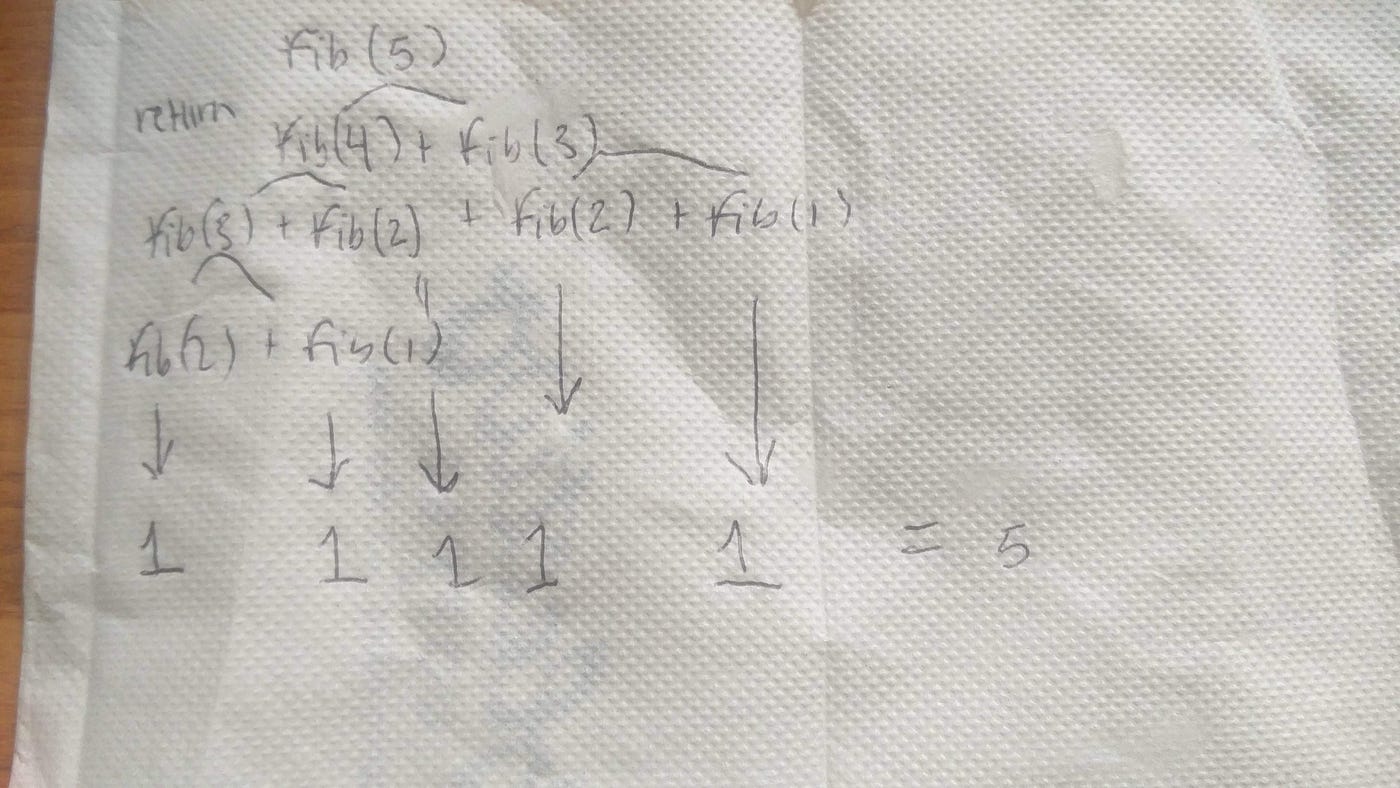 fib(5)
return
fib(4) + fib(3)
fib(3) + fib(2) + fib(2) + fib(1)
fib(2) + fib(1)
1 1 1 1 1 = 5